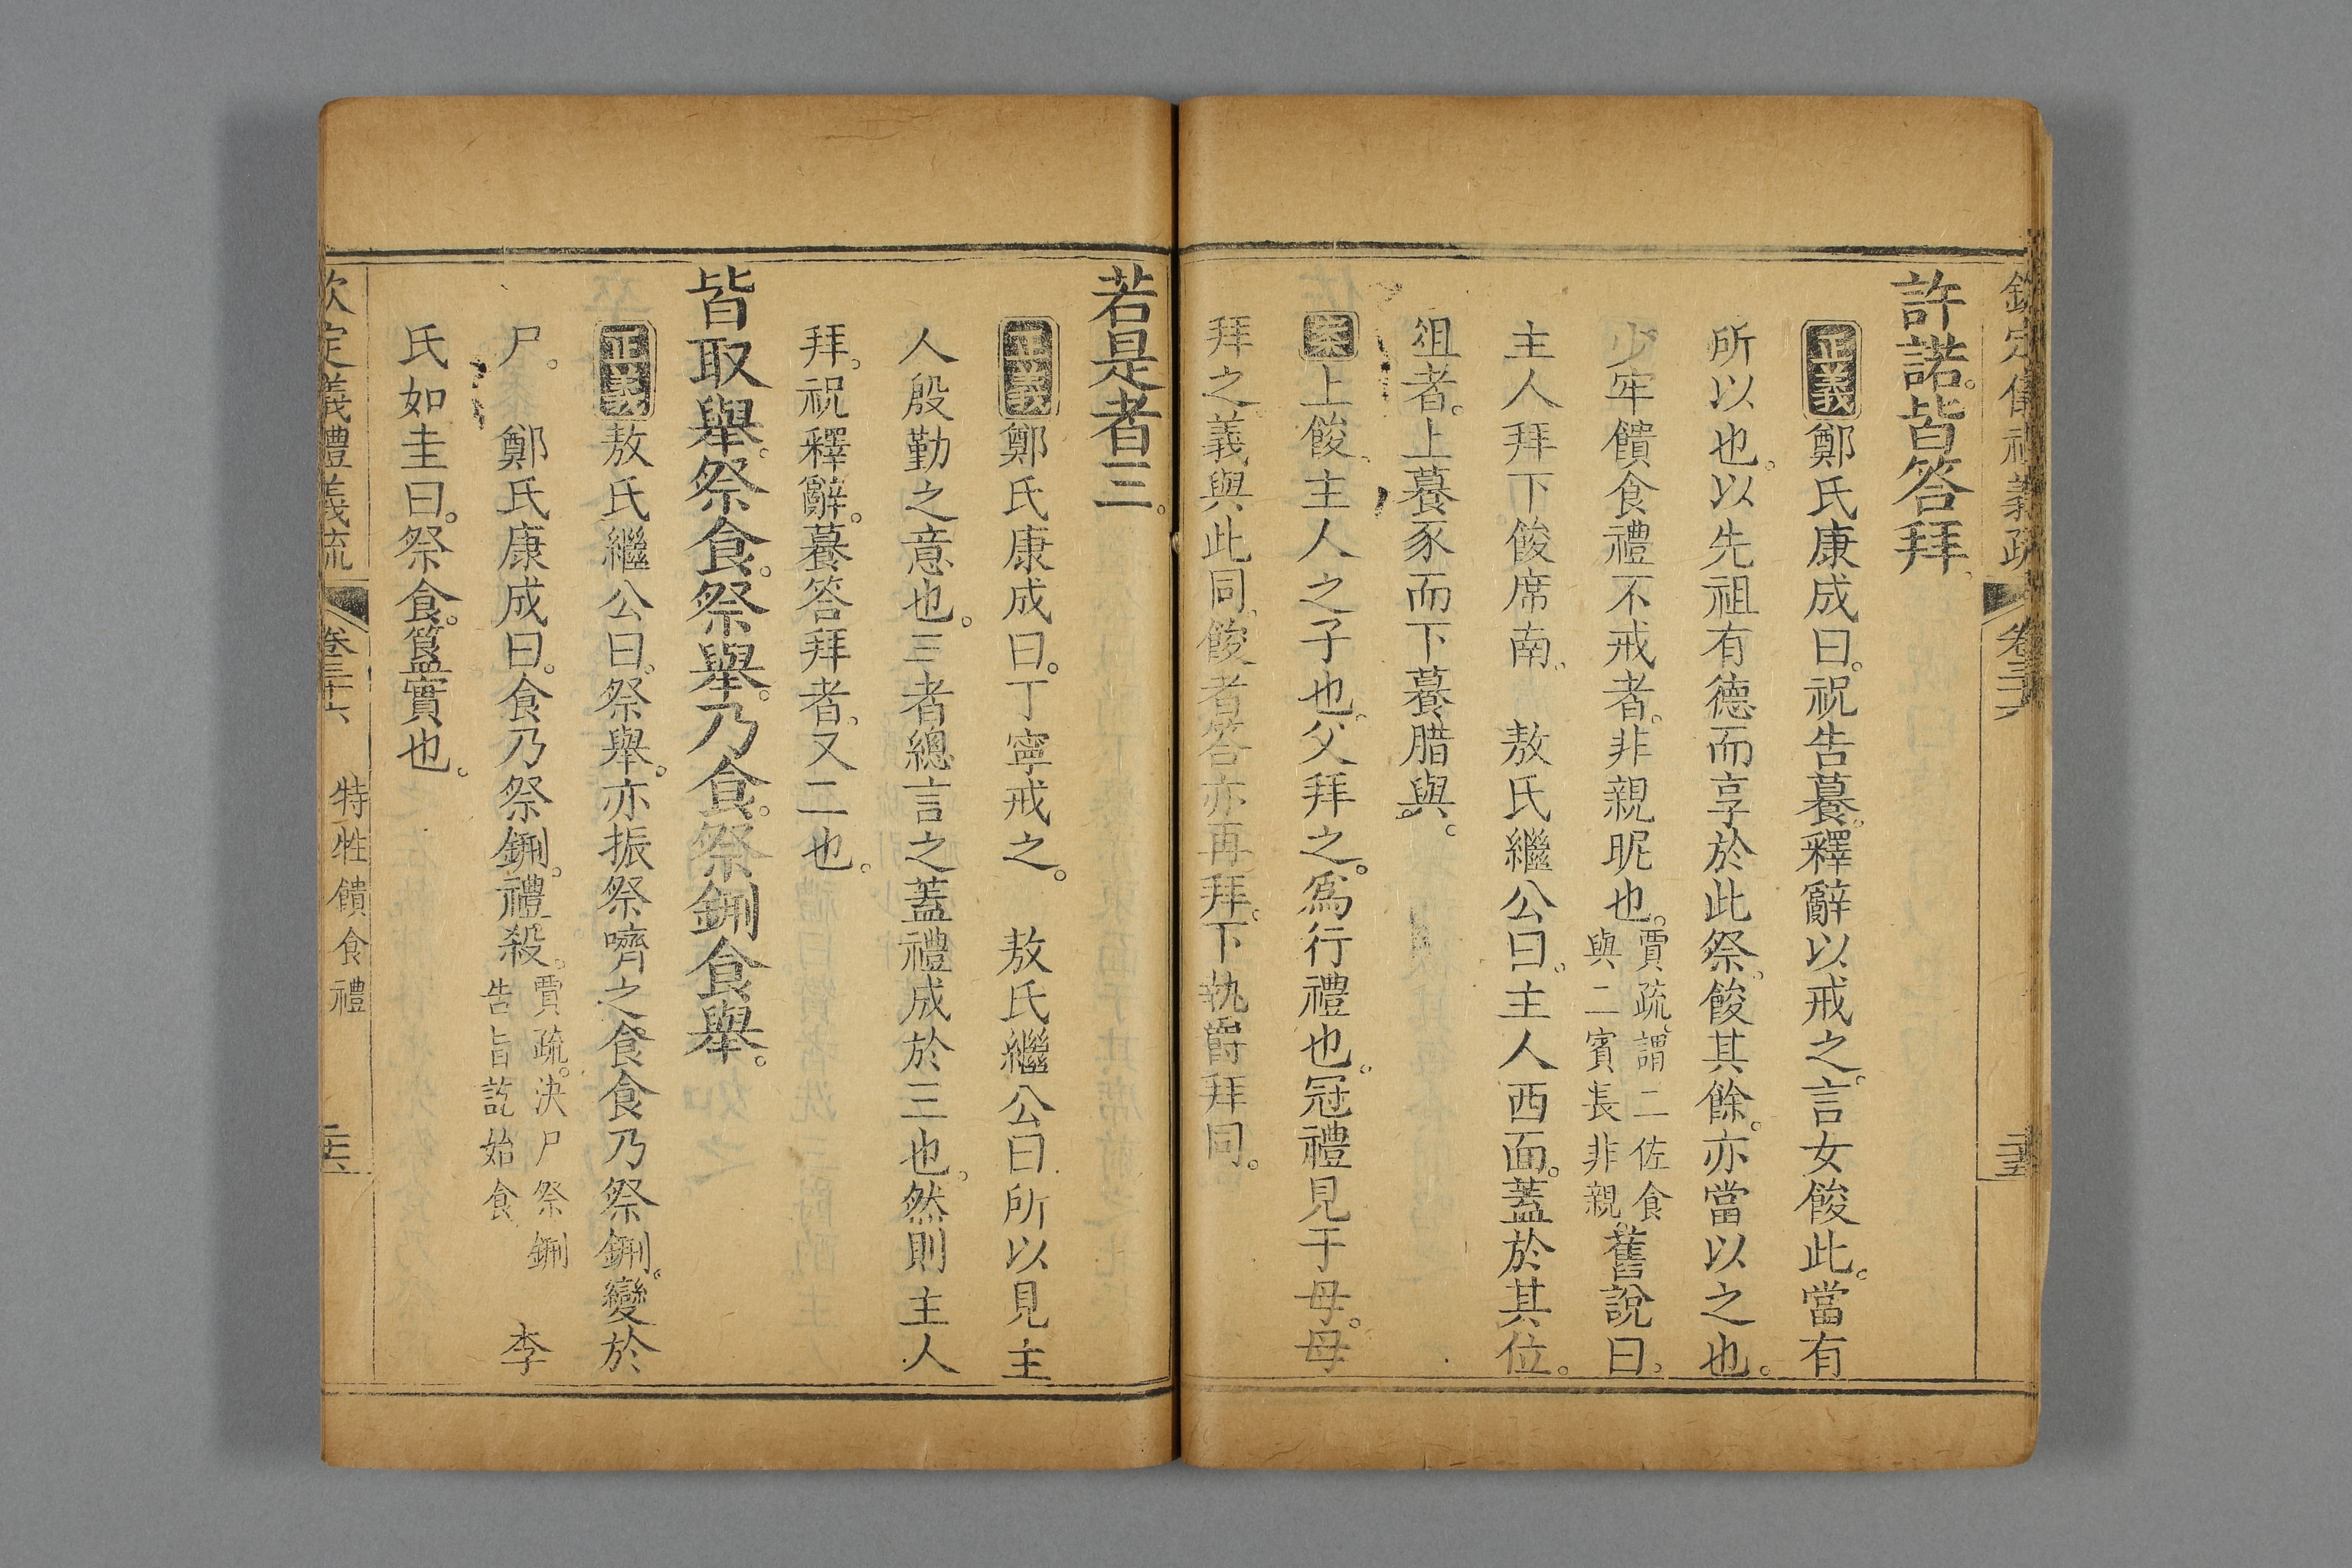 欽定儀禮義疏 卷三十六 二十五
許諾。皆答拜。
正義鄭氏康成曰。祝告䕩。釋辭以戒之。言女餕此。當有
所以也。以先祖有德而享於此祭。餕其餘。亦當以之也。
少牢饋食禮不戒者。非親昵也。賈疏。謂二佐食
與二賓長非親。舊說曰。
主人拜下餕席南。 敖氏繼公曰。主人西面。蓋於其位。
俎者。上䕩豕而下䕩腊與。
案上餕。主人之子也。父拜之。爲行禮也。冠禮見于母。母
拜之。義與此同。餕者答亦再拜。下執爵拜同。
若是者三。
正義鄭氏康成曰。丁寧戒之。 敖氏繼公曰所以見主
人殷勤之意也。三者總言之蓋禮成於三也。然則主人
拜。祝釋辭。䕩答拜者。又二也。
皆取舉。祭食。祭舉。乃食。祭鉶食舉。
正義敖氏繼公曰。祭舉。亦振祭嚌之食。食乃祭鉶。變於
尸。 鄭氏康成曰。食乃祭鉶。禮殺。賈疏。決尸祭鉶
告旨訖始食 李
氏如圭曰。祭食。簋實也。
欽定義禮義疏 卷三十六 特牲饋食禮 二十六